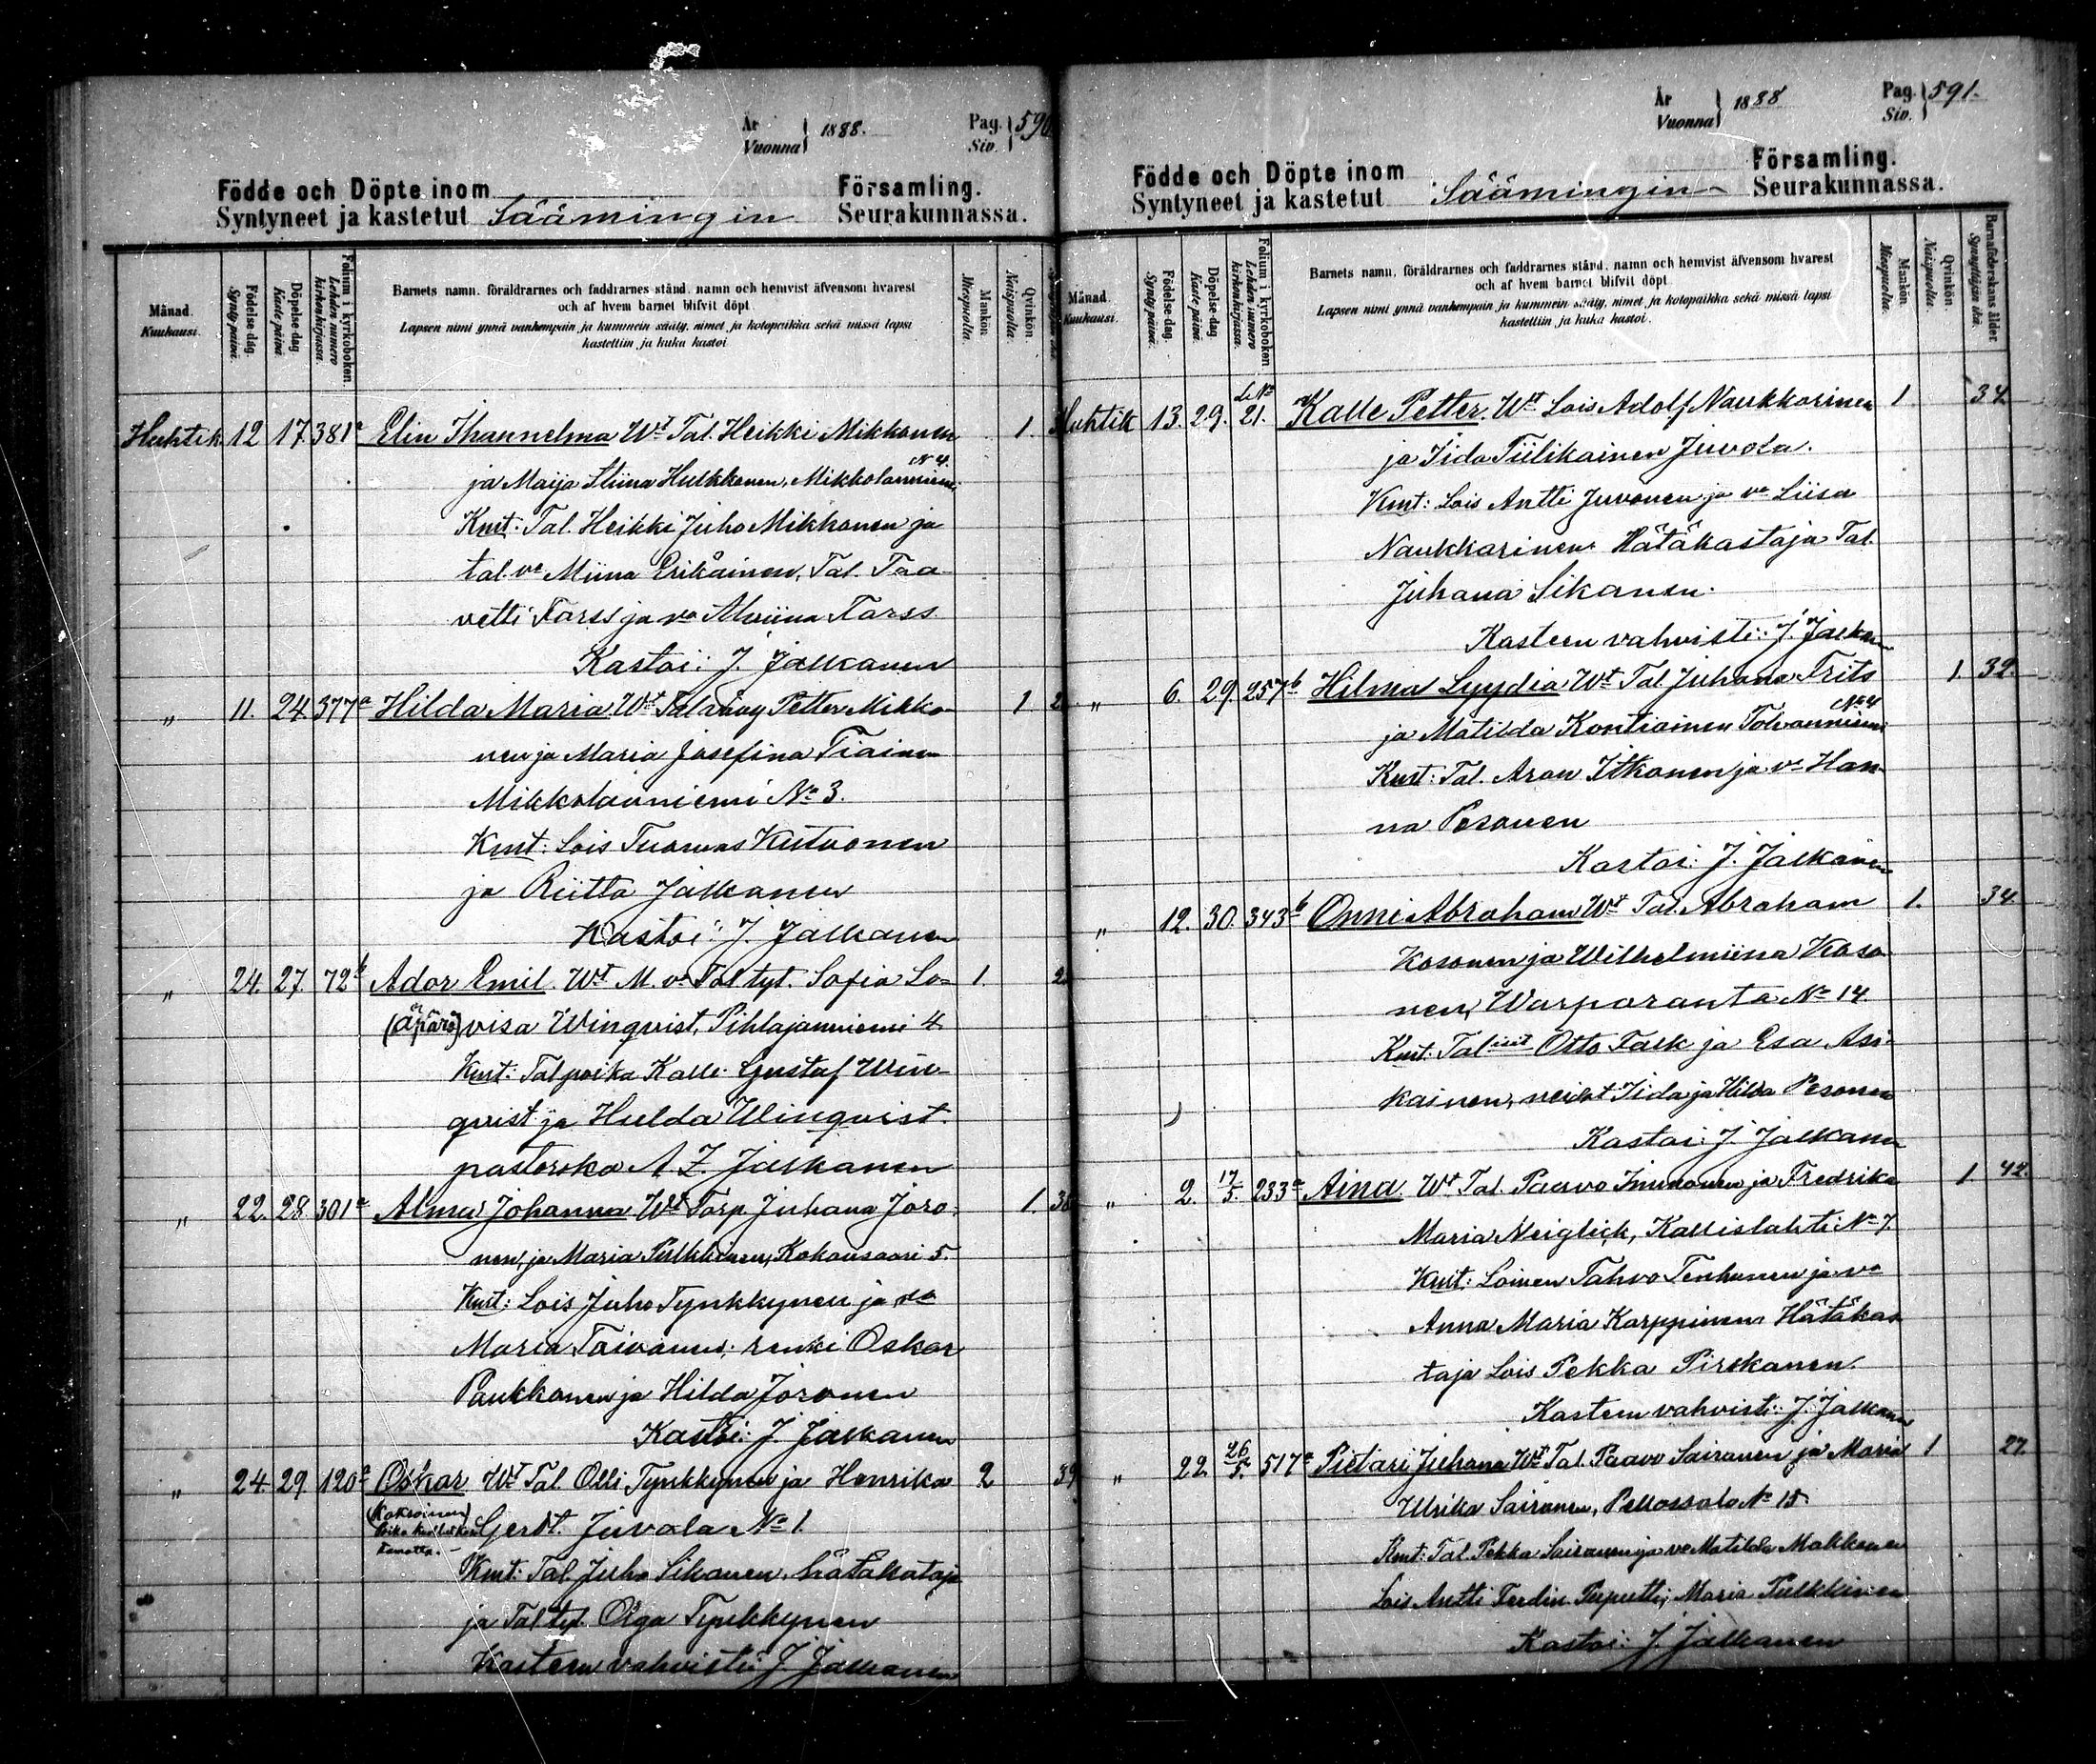 År
Vuonna } 1888.
Pag.
Siv. } 590
Födde och Döpte inom Församling.
Syntyneet ja kastetut Säämingin Seurakunnassa.
Månad. Kuukausi.
Födelse dag. Synty päivä.
Döpelse dag Kaste päivä.
Folium i kyrkoboken. Lehden numero kirkonkirjassa.
Barnets namn, föräldrarnes och faddrarnes stånd, namn och hemvist äfvensom hvarest
och af hvem barnet blifvit döpt
Lapsen nimi ynnä vanhempain ja kummein sääty, nimet, ja kotopaikka sekä missä lapsi
kastettiin ja kuka kastoi
Mankön Miespuolta.
Qvinkön Naispuolta.
Huhtik 12 17. 381a Elin Ihannelma Wt Tal. Heikki Mikkonen 1.
ja Maija Stiina Hulkkonen, Mikkolanniemi N 4.
Kmt: Tal. Heikki Juho Mikkonen ja
tal. va Miina Eriläinen, Tal. Taa
vetti Tarss ja va Alviina Tarss
Kastoi: J. Jalkanen
" 11. 24. 377a Hilda Maria Wt Petter Mikko- 1
nen ja Maria Josefina Tiainen
Mikkolanniemi No 3.
Kmt: Lois Tuomas Kutvonen
ja Riitta Jalkanen
Kastoi: J. Jalkanen
" 24. 27. 72b Ador Emil. Wt M. va Tal tyt. Sofia Lo= 1.
(äpärä) visa Winqvist, Pihlajaniemi 4
Kmt: Tal poika Kalle Gustaf Win-
qvist ja Hulda Winqvist.
pastorska A. Z. Jalkanen
" 22. 28 301a Alma Johanna Wt Torp. Juhana Joro- 1.
nen, ja Maria Pulkkinen, Kokonsaari 5.
Kmt: Lois Juho Tynkkynen ja va
Maria Taivanen, renki Oskar
Paukkonen ja Hilda Joronen
Kastoi: J. Jalkanen
" 24. 29 120a Oskar Wt Tal Olli Tynkkynen ja Henrika 2 39
(Kaksoinen)
Gerdt. Juvola No 1.
Kmt: Tal. Juho Sikanen, hätäkastaja
ja Tal tyt. Olga Tynkkynen
Kasteen vahvisti: J Jalkanen
År
Vuonna } 1888
Pag.
Siv. } 591.
Födde och Döpte inom Församling.
Syntyneet ja kastetut Säämingin Seurakunnassa.
Månad. Kuukausi.
Födelse dag. Synty päivä.
Döpelse dag. Kaste päivä.
Folium i kyrkoboken Lehden numero kirkonkirjassa.
Barnets namn, föräldrarnes och faddrarnes stånd, namn och hemvist äfvensom hvarest
och af hvem barnet blifvit döpt
Lapsen nimi ynnä vanhempain ja kummein sääty, nimet, ja kotopaikka sekä missä lapsi
kastettiin ja kuka kastoi.
Mankön Miespuolta.
Qvinkön Naispuolta.
Barnaföderskans ålder Synnyttäjän ikä.
Huhtik 13. 29. L No 21. Kalle Petter. Wt Lois Adolf Naukkarinen 1 34
ja Iida Tiilikainen Juvola.
Kmt: Lois Antti Juvonen ja va Liisa
Naukkarinen Hätäkastaja Tal.
Juhana Sikanen.
Kasteen vahvisti: J. Jalkan
" 6. 29. 257b Hilma Lyydia Wt Tal Juhana Frits 1. 32.
ja Matilda Kontiainen Tolvanniemi No 4
Kmt: Tal. Aron Itkonen ja va Han-
na Pesonen
Kastoi: J. Jalkanen
" 12. 30. 343b Onni Abraham Wt Tal. Abraham 1. 34.
Kosonen ja Wilhelmiina Koso
nen, Warparanta No 14
Kmt: Tal Otto Falk ja Esa Asi-
kainen, neidet Iida ja Hilda Pesonen
Kastoi: J. Jalkanen
" 2. 17/5. 233a Aina Wt Tal. Paavo Immonen ja Fredrika 1. 42.
Maria Neiglick, Kallislahti No 7.
Kmt: Loinen Tahvo Tenhunen ja va
Anna Maria Karppinen Hätäkas
taja Lois Pekka Pirskanen.
Kasteen vahvisti: J. Jalkanen
" 22 26/5. 517a Pietari Juhana Wt Tal. Paavo Sairanen ja Maria 1 27
Ulrika Sairanen, Pellossalo No 15.
Kmt: Tal. Pekka Sairanen ja va Matilda Makkonen
Lois Antti Ferdin. Puputti, Maria Pulkkinen
Kastoi: J. Jalkanen